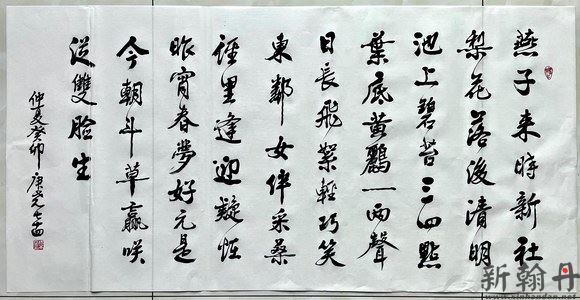 燕子来時新社
梨花落後清明
池上碧苔三四點
葉底黄鸝一两聲
日長飛絮輕巧笑
東鄰女伴采桑
徑里逢迎疑恠
昨宵春夢好元是
今朝斗草贏咲
從雙臉生
仲夏癸卯
新翰丹
www.xinhandan.net